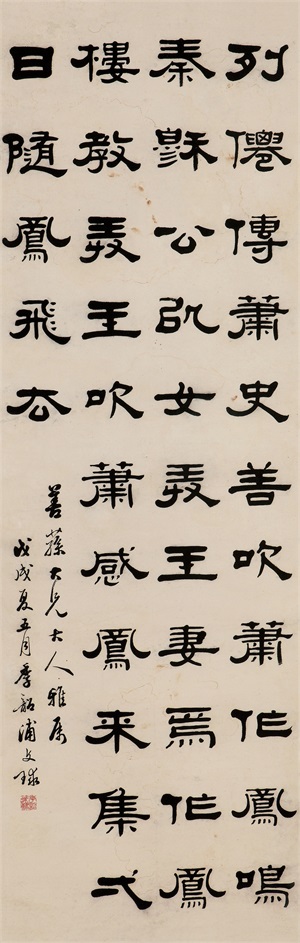 列僊傳蕭史善吹蕭作鳳鳴
秦穆公以女弄玉妻焉作鳳
樓教弄玉吹蕭感鳳來集弌
日隨鳳飛去
善蓀大兄大人雅屬
戊戌夏五月季韶浦文球